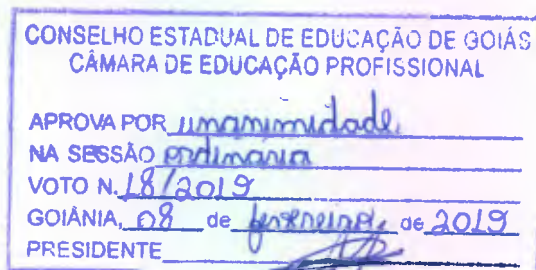 CONSELHO ESTADUAL DE EDUCAÇÃO DE GOIÁS
CÂMARA DE EDUCAÇÃO PROFISSIONAL
APROVA POR unanimidade
NA SESSÃO ordinária
VOTO N. 18/2019
GOIÂNIA, 08 de fevereiro de 2019
PRESIDENTE